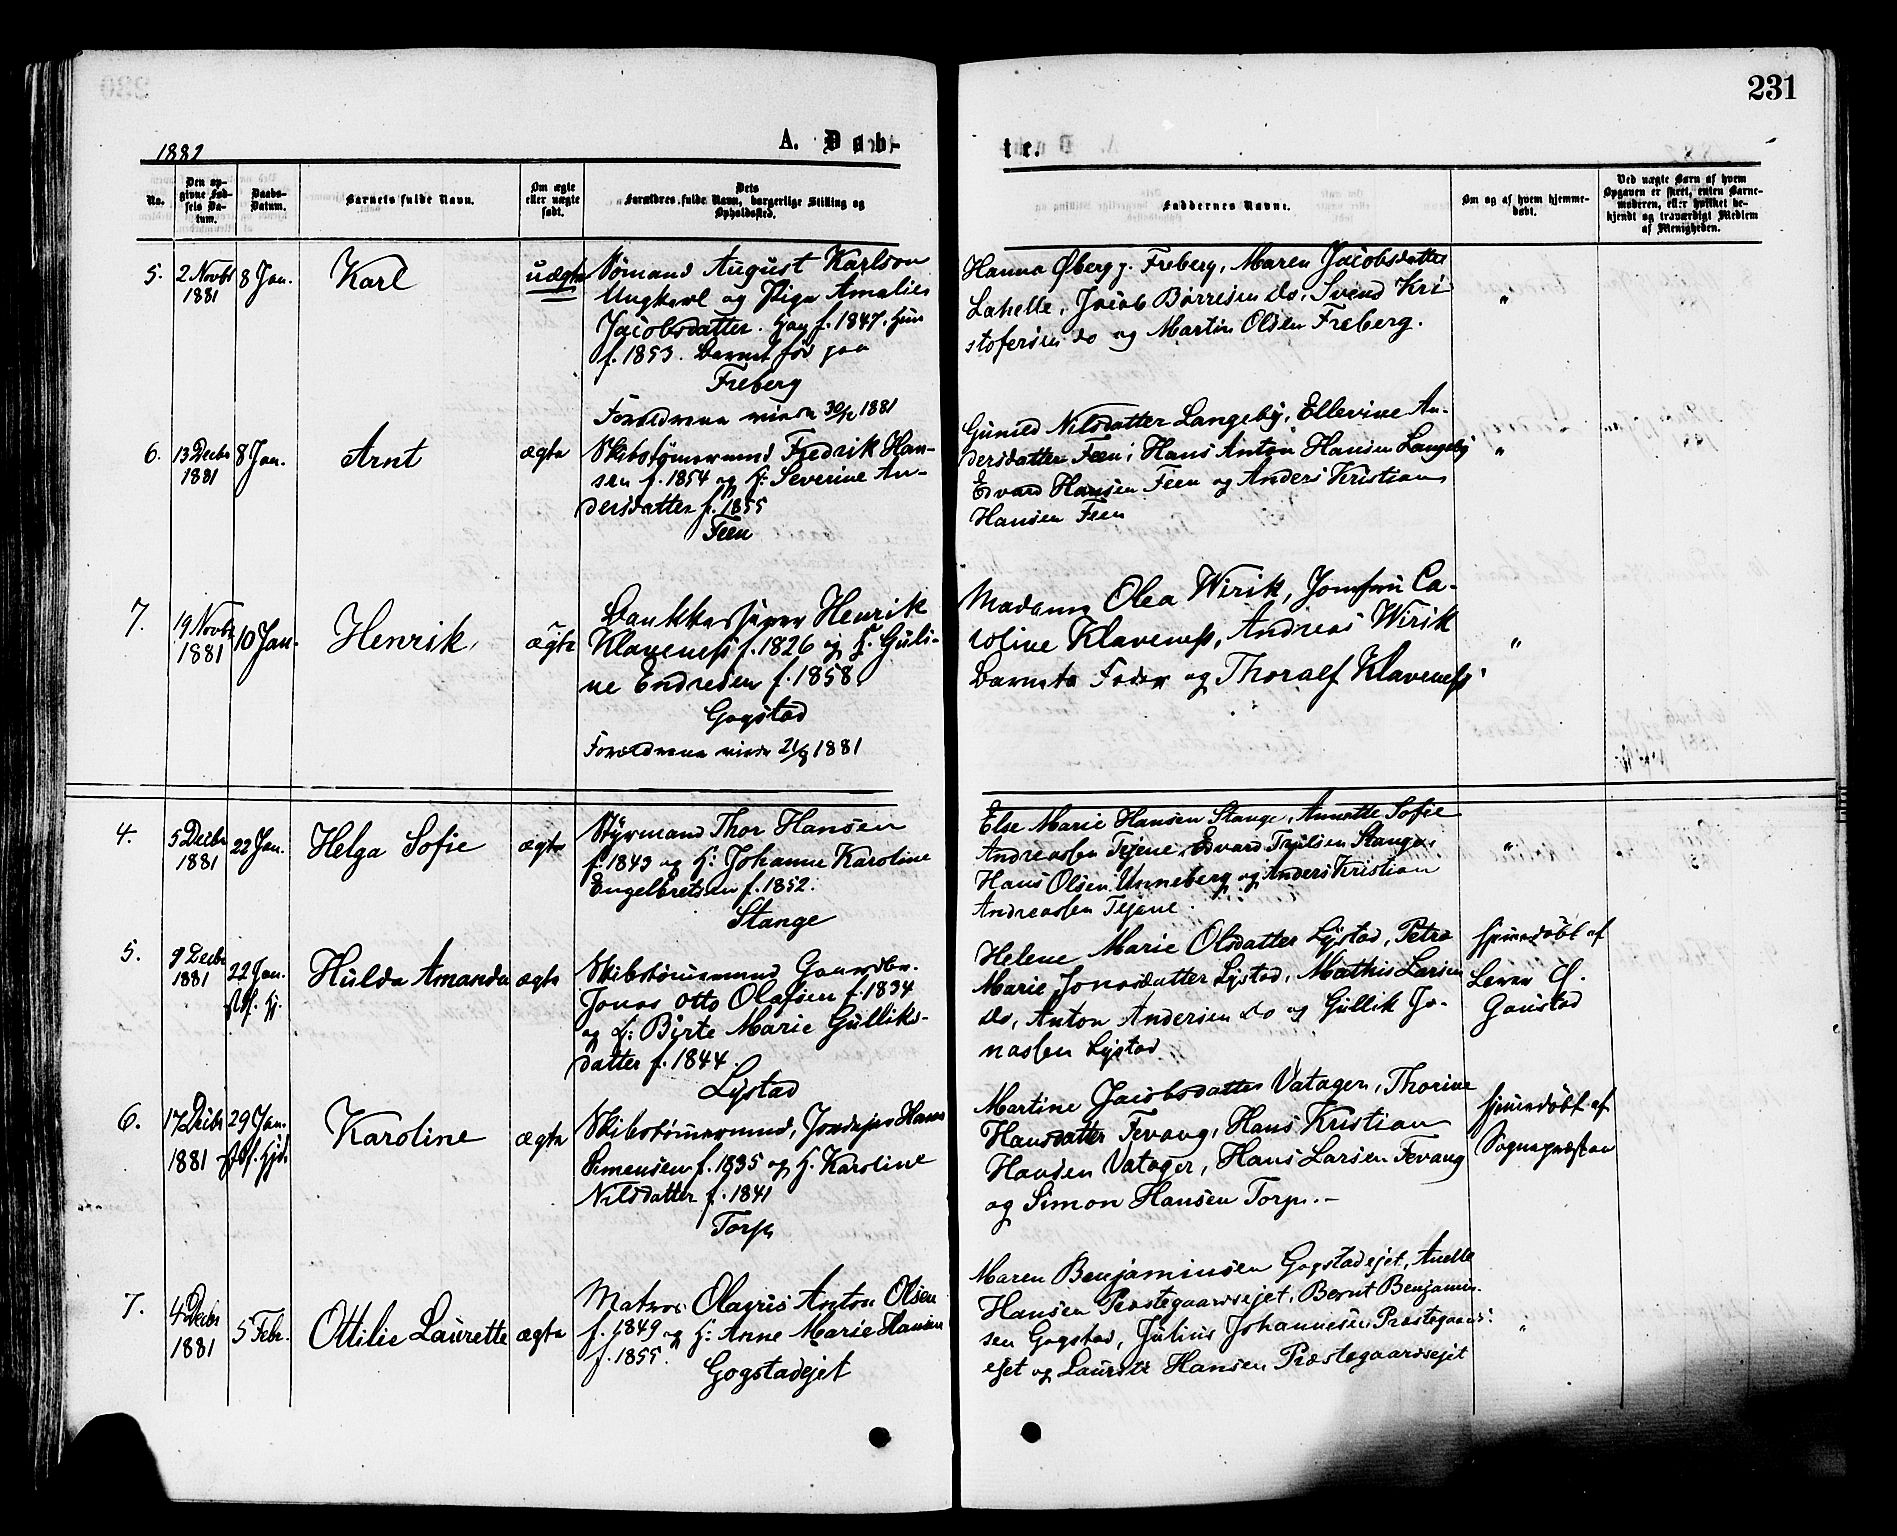 231
1882
A. Døb-
te.
No.
Den op-
givne Fød-
sels Da-
tum.
Daabs-
Datum.
Barnets fulde Navn.
Om ægte
eller uægte
født.
Dets
Forældres fulde Navn, borgerlige Stilling og
Opholdssted.
Faddernes Navne.
Om og af hvem hjemme-
døbt.
Ved uægte Barn af hvem
Opgaven er skeet, enten Barne-
moderen, eller hvilket be-
kjendt og troværdigt Medlem
af Menigheden.
5.
2 Novbr
1881
8 Jan.
Karl
uægte
Sømand August Karlson
Ungkarl og Pige Amalie
Jacobsdatter. Han f. 1847. Hun
f. 1853. Barnet født paa
Freberg
Hanna Øberg p. Freberg, Maren Jacobsdatter
Lahelle, Jacob Børresen do, Svend Kri
stofersen do og Martin Olsen Freberg.
"
6.
13 Decbr
1881
8 Jan.
Arnt
ægte
Forældrene viede 30/12 1881
Skibstømmermd Fredrik Han-
sen f. 1854 og H: Severine An-
dersdatter f. 1855
Feen
Guneld Nilsdatter Langeby, Ellevine An-
dersdatter Feen, Hans Anton Hansen Langeby
Edvard Hansen Feen og Anders Kristian
Hansen Feen
"
7.
19 Novbr
1881
10 Jan.
Henrik
ægte
Bankkasserer Henrik
Klaveness f. 1826 og F. Guli-
ne Endresen f. 1858.
Gogstad
Forældrene viede 21/9 1881
Madame Olea Wirik, Jomfru Ca-
roline Klaveness, Andreas Wirik
Barnets Fader og Thoralf Klaveness
"
4.
5 Decbr
1881
22 Jan.
Helga Sofie
ægte
Styrmand Thor Hansen
f. 1843 og H: Johanne Karoline
Engelbretsen f. 1852.
Stange
Else Marie Hansen Stange, Annette Sofie
Andreassen Tejene, Edvard Trulsen Stange,
Hans Olsen Unneberg og Anders Kristian
Andreassen Tejene.
"
5.
9 Decbr
1881
22 Jan.
Hulda Amanda
ægte
Skibstømmermd Gaardbr.
Jonas Otto Olafsen f. 1834
og H: Birte Marie Gulliks-
datter f. 1844.
Lystad
Helene Marie Olsdatter Lystad, Petra
Marie Jonasdatter Lystad, Mathis Larsen
do, Anton Andersen do og Gullik Jo-
nassen Lystad
hjemmedøbt af
Lærer
Gaustad
6.
17 Decbr
1881
29 Jan.
Karoline
ægte
Skibstømmermd, Jordejer Hans
Simensen f. 1835 og H. Karoline
Nilsdatter f. 1841
Torp
Martine Jacobsdatter Vatager, Thorine
Hansdatter Fevang, Hans Kristian
Hansen Vatager, Hans Larsen Fevang
og Simon Hansen Torp. -
hjemmedøbt af
Sognepræsten
7.
4 Decbr
1881
5 Febr.
Ottilie Laurette
ægte
Matros Olavus Anton Olsen
f. 1849 og H: Anne Marie Hansen
f. 1855.
Gogstadejet
Maren Benjaminsen Gogstadejet, Anette
Hansen Præstegaardsejet, Bernt Benjamin-
sen Gogstad, Julius Johannesen Præstegaards-
ejet og Lauritz Hansen Præstegaardsejet
"